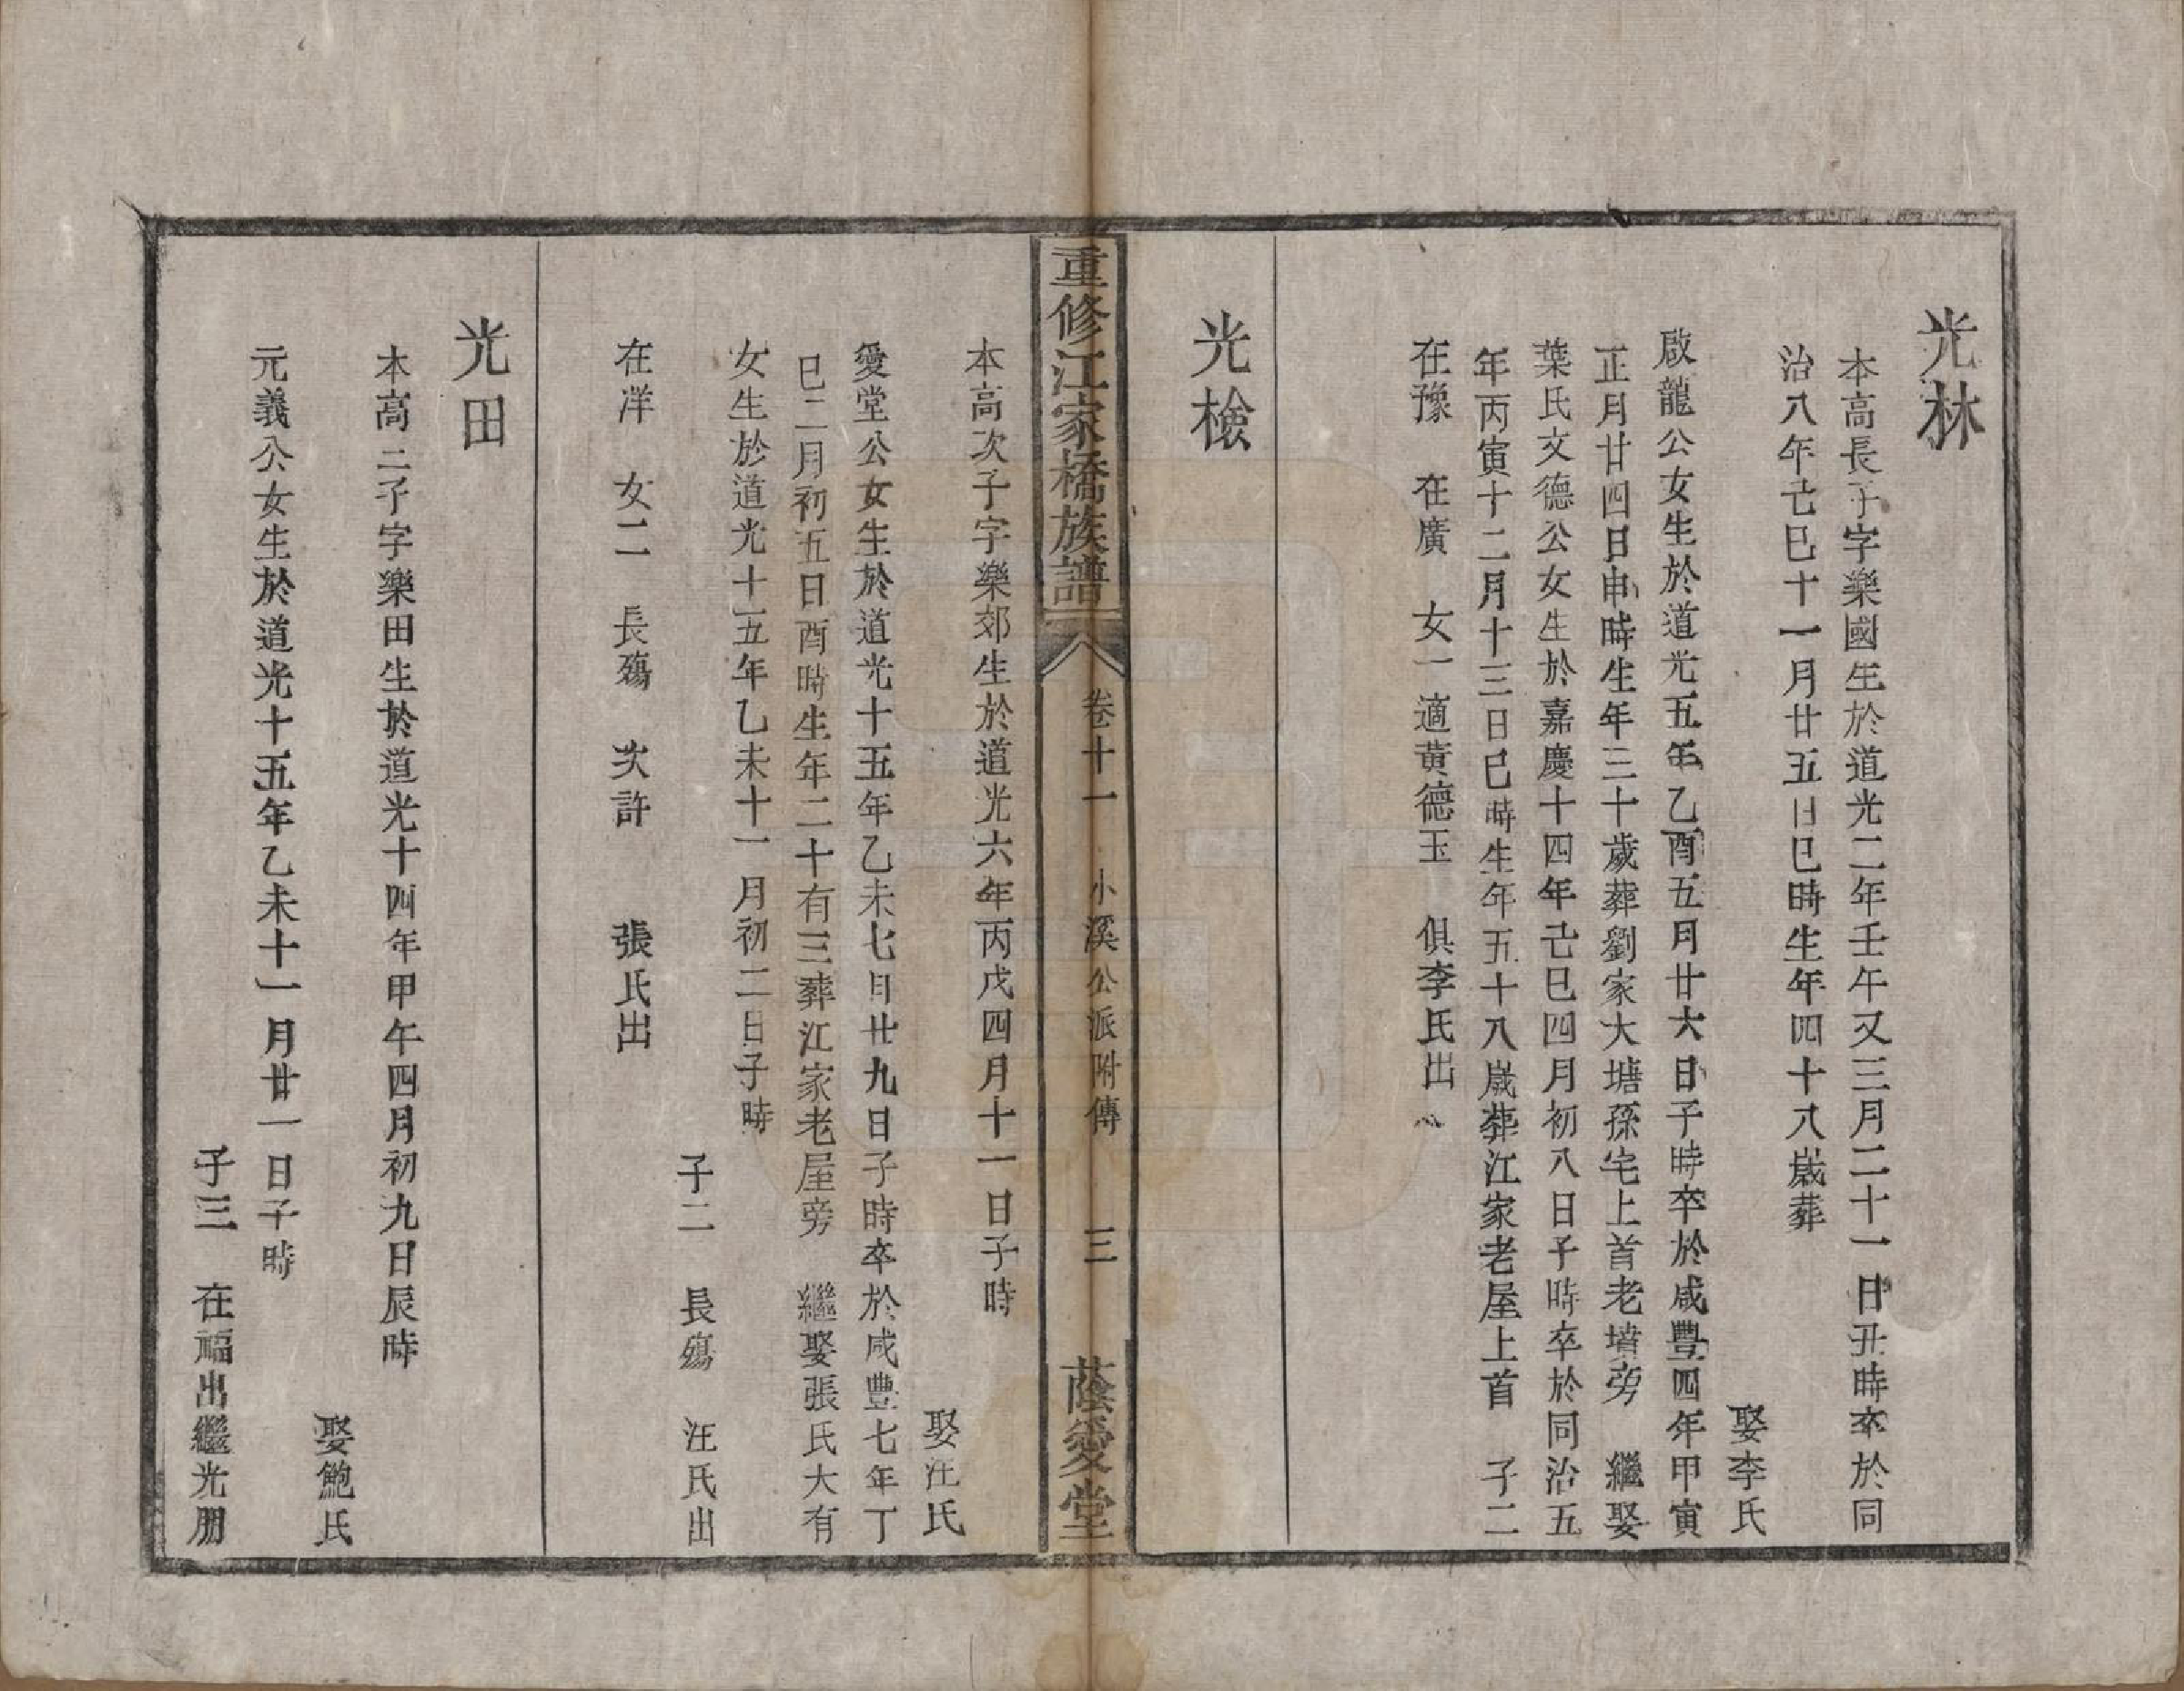 光林
本高長子字樂國生於道光二年壬午又三月二十一日丑時卒於同
治八年己巳十一月廿五日巳時生年四十八歲葬
娶李氏
啟龍公女生於道光五年乙酉五月廿六日子時卒於咸豐四年甲寅
正月廿四日申時生年三十歲葬劉家大塘孫宅上首老墳旁 繼娶
葉氏文德公女生於嘉慶十四年己巳四月初八日子時卒於同治五
年丙寅十二月十三日巳時生年五十八歲葬江家老屋上首 子二
在豫 在廣 女一適黄德玉 俱李氏出
光檢
重修江家橋族譜 卷十一 小溪公派附傳 三 蔭愛堂
本高次子字樂郊生於道光六年丙戌四月十一日子時
娶汪氏
愛堂公女生於道光十五年乙未七月廿九日子時卒於咸豐七年丁
巳二月初五日酉時生年二十有三葬江家老屋旁 繼娶張氏大有
女生於道光十五年乙未十一月初二日子時
子二 長殤 汪氏出
在洋 女二 長殤 次許 張氏出
光田
本高三子字樂田生於道光十四年甲午四月初九日辰時
娶鮑氏
元義公女生於道光十五年乙未十一月廿一日子時
子三 在福出繼光朋